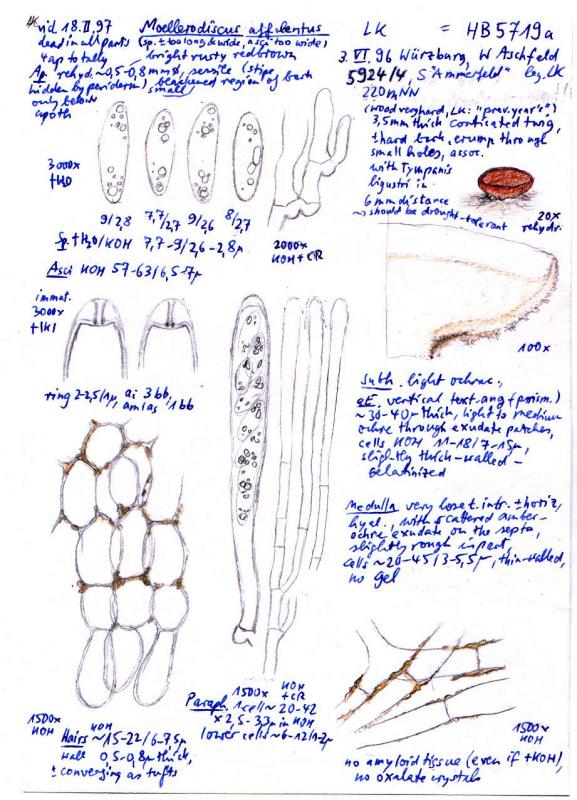 vid 18.II.97 Moellerodiscus aff. lentus LK = HB5719a
dead in all parts (sp. ± too long & wide, asci too wide)
4 ap totally bright rusty redbrown
Ap. rehyd. ~0,5-0,8 mm ø, sessile (stipe
hidden by periderm) bleached region of bark
only below small
apoth
3. VI. 96 Würzburg, W Aschfeld
5924/4, S "Ammerfeld" leg. LK
220 m NN
(wood very hard, LK: "prev. year's")
3,5mm thick corticated twig,
± hard bark, erump through
small holes, assoc.
with Tympanis
ligustri in
6 mm distance
~> should be drought-tolerant
20x
rehydr.
3000x
+H2O
9/2,8 7,7/2,7 9/2,6 8/2,7
Sp. +H2O/KOH 7,7-9/2,6-2,8µ
2000x
KOH+CR
Asci KOH 57-63/6,5-7µ
immat.
3000x
+IKI
ring 2-2,5/1µ, ai 3bb,
am/as 1bb
100x
Subh. light ochrac.,
eE. vertical text. ang (+prism.)
~30-40µ thick, light to medium
ochre through exudate patches,
cells KOH 11-18/7-15µ,
slightly thick-walled-
gelatinized
Medulla very loose t. intr. ± horiz,
hyal., with scattered amber-
ochre exudate on the septa,
slightly rough in part,
cells ~20-45/3-5,5µ, thin-walled,
no gel
1500x
KOH
+CR
Paraph. 1 cell ~20-42
x 2,5-3,3µ in KOH
lower cells ~6-12/1-2µ
1500x
KOH
KOH
Hairs ~15-22/6-7,5µ
wall 0,5-0,8µ thick,
± converging as tufts
1500x
KOH
no amyloid tissue (even if +KOH),
no oxalate crystals